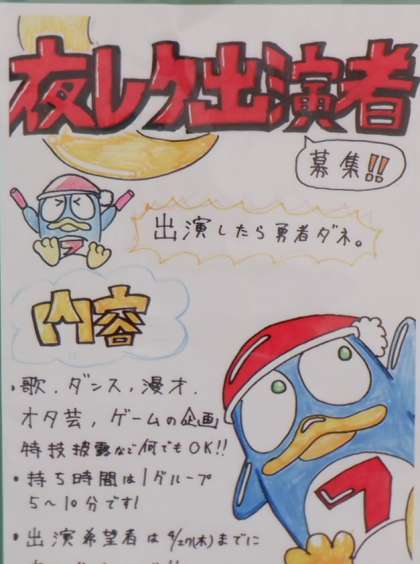 夜レク出演者
募集!!
出演したら勇者ダネ。
内容
・歌、ダンス、漫才、
オタ芸、ゲームの企画
特技披露など何でもOK!!
・持ち時間は1グループ
5～10分です!
・出演希望者は9/27(木)までに